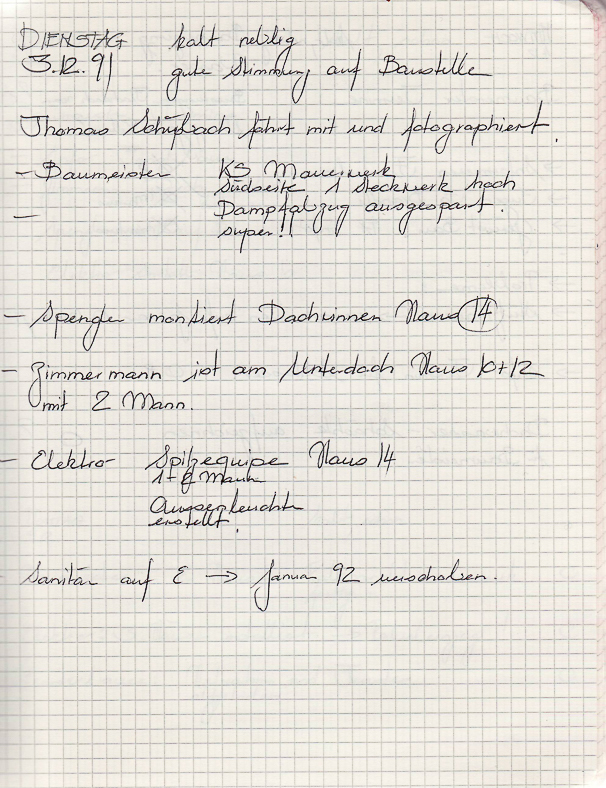 DIENSTAG kalt neblig
3.12.91 gute Stimmung auf Baustelle
Thomas Schüpbach fährt mit und fotographiert.
- Baumeister KS Mauerwerk
Südseite 1 Stockwerk hoch
- Dampfabzug ausgespart.
super!!
- Spengler montiert Dachrinnen Haus 14
- Zimmermann ist am Unterdach Haus 10+12
mit 2 Mann.
- Elektro- Spitzequipe Haus 14
1+ Mann
Aussenleuchte
erstellt.
Sanitär auf E → Januar 92 verschoben.